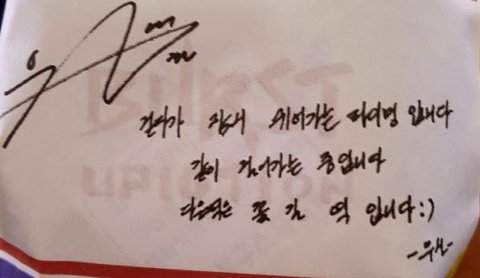 걷다가 잠시 쉬어가는 타이밍 입니다
같이 걸어가는 중입니다
다음역은 꽃 길 역 입니다:)
-우신-